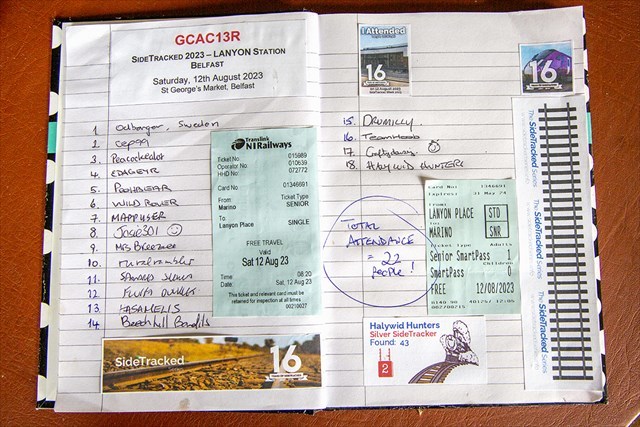 GCAC13R
SIDETRACKED 2023 – LANYON STATION
BELFAST
Saturday, 12th August 2023
St George's Market, Belfast
1 Odbarger, Sweden
2 cep99
3.
4. EDAGEYR
5.
6. WILD ROVER
7 MAPPUSER
8 Josie301
9. MRS Breeznee
10. ruralrambler
11.
12
13.
14 Beech hill Bandits
Translink
NI Railways
Ticket No 015989
Operator No 010639
HHD No 072772
Card No 01346691
From: Ticket Type
Marino SENIOR
To:
Lanyon Place SINGLE
FREE TRAVEL
Valid
Sat 12 Aug 23
Time 08:20
Date: Sat, 12 Aug 23
This ticket and relevant card must be
retained for inspection at all times
00210027
SideTracked
16
I Attended
16
16
15. DRUMILLY
16. TeamHoob
17.
18. HALYWID HUNTERS
TOTAL
ATTENDANCE
= 22
PEOPLE!
Card No: 1346691
31 May 24
From
LANYON PLACE STD
To
MARINO SNR
Ticket Type Adults
Senior SmartPass 1
Children
SmartPass 0
FREE 12/08/2023
Halywid Hunters
Silver SideTracker
Found: 43
2
The SideTracked Series
The SideTracked Series
The SideTracked Series